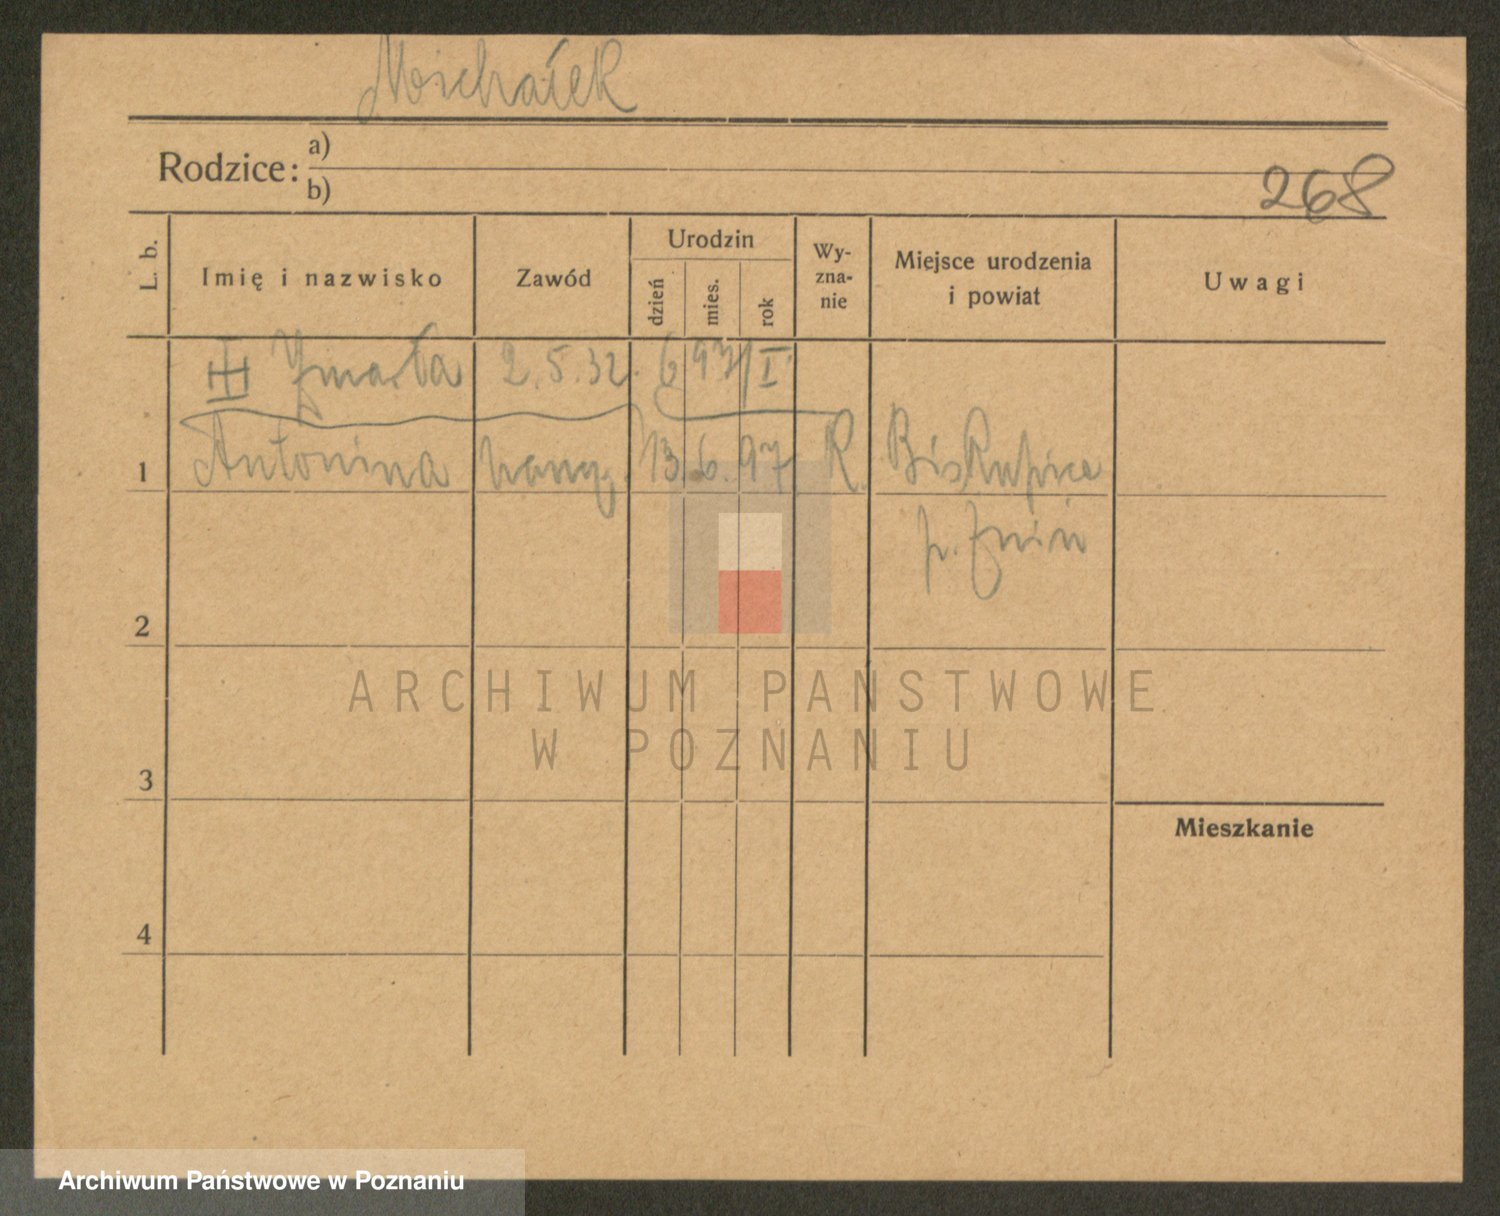 Michałek
Rodzice: a)
b)
268
L. b. Imię i nazwisko Zawód Urodzin dzień mies. rok Wy-zna-nie Miejsce urodzenia i powiat Uwagi
Zmarła 2.5.32.
1 Antonina 13 6. 97 R. Biskupice
p. Żnin
2
3
Mieszkanie
4
ARCHIWUM PAŃSTWOWE
W POZNANIU
Archiwum Państwowe w Poznaniu